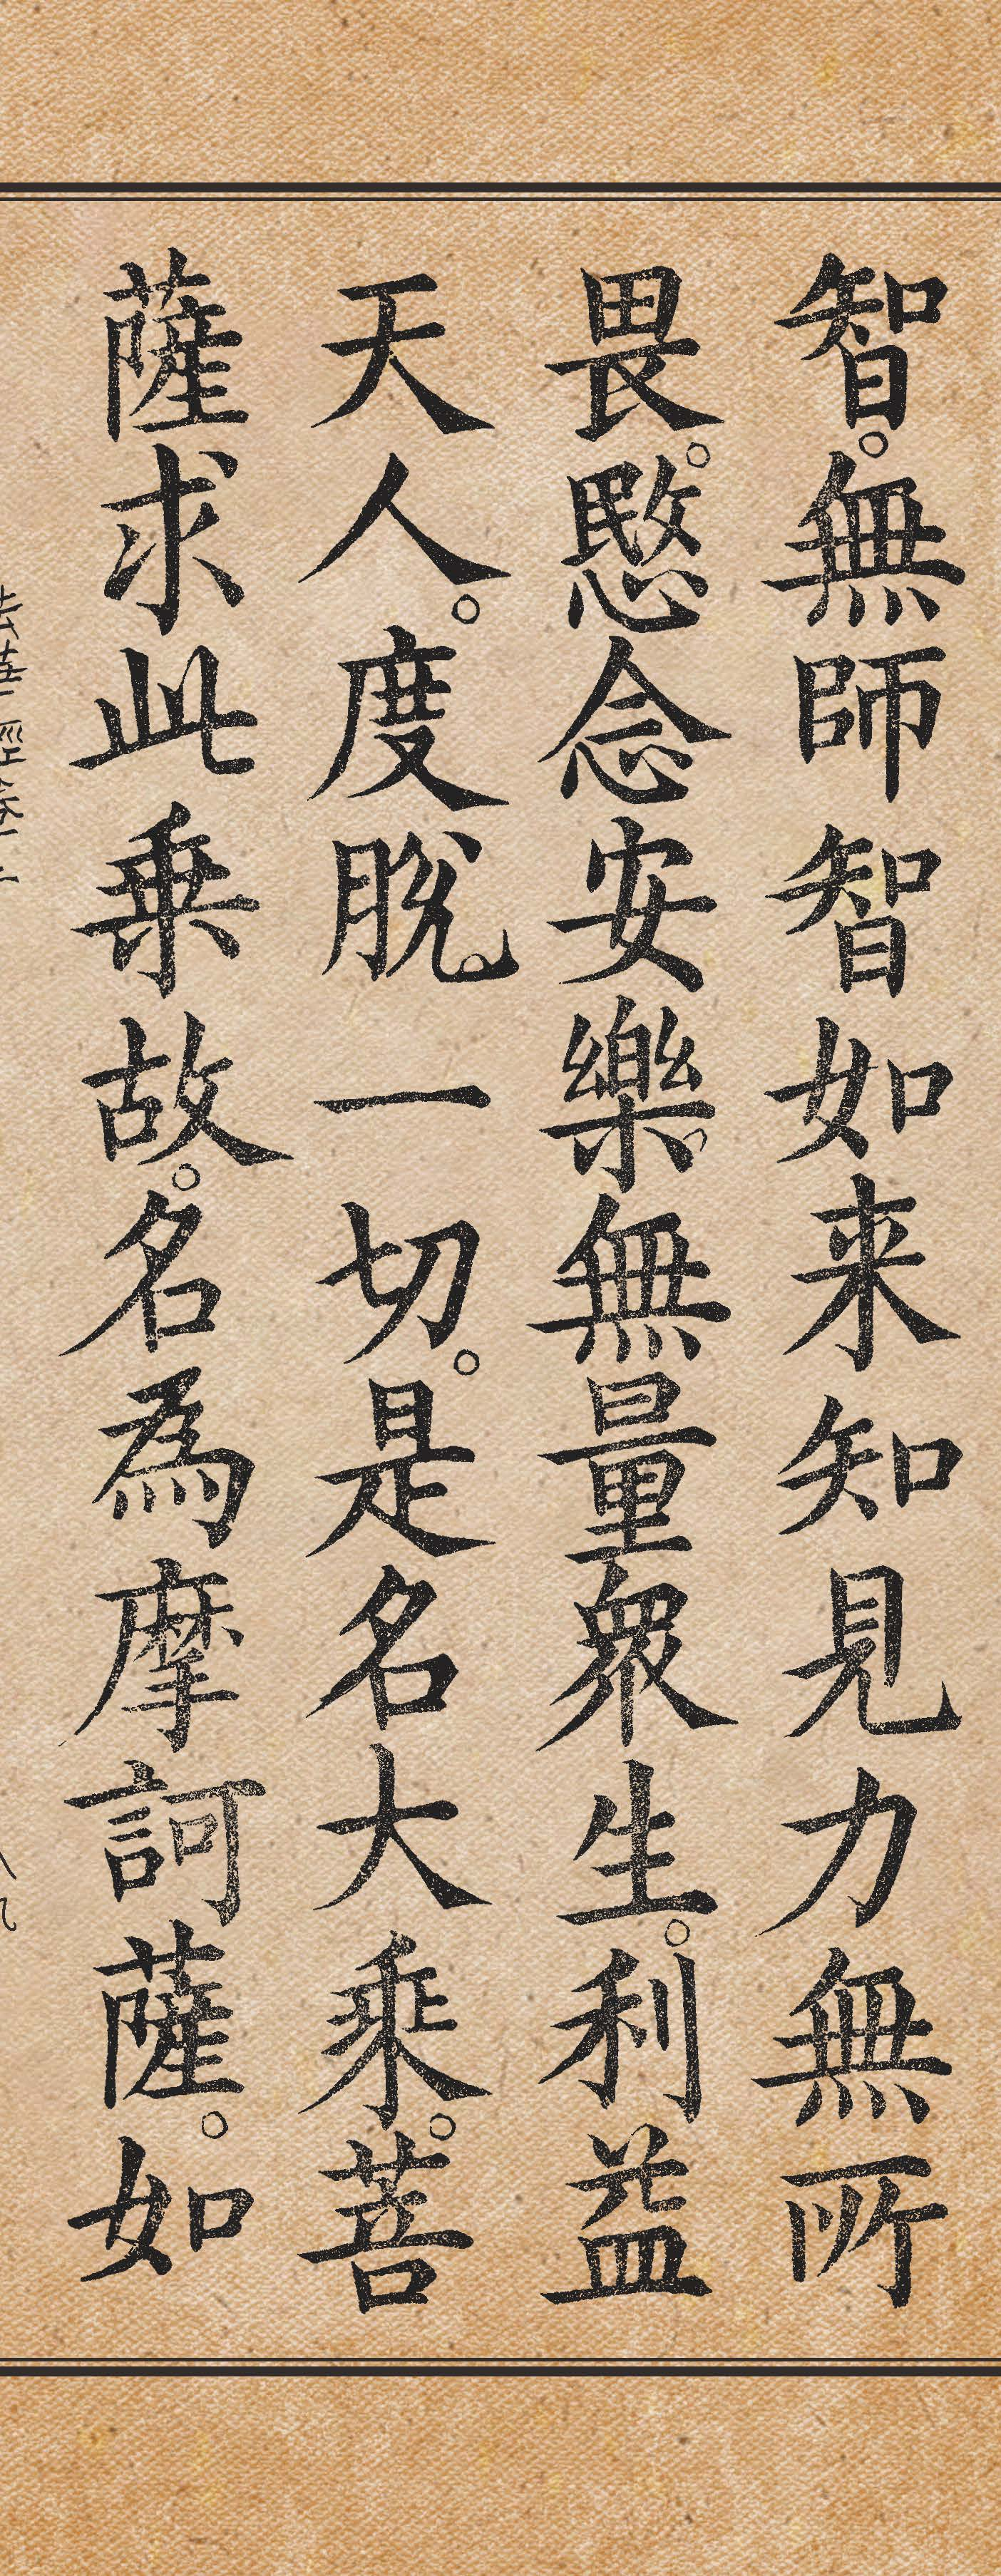 智。無師智如来知見力無所
畏。愍念安樂。無量衆生。利益
天人。度脫。一切。是名大乘。菩
薩求此乗故。名為摩訶薩。如
法華經卷二